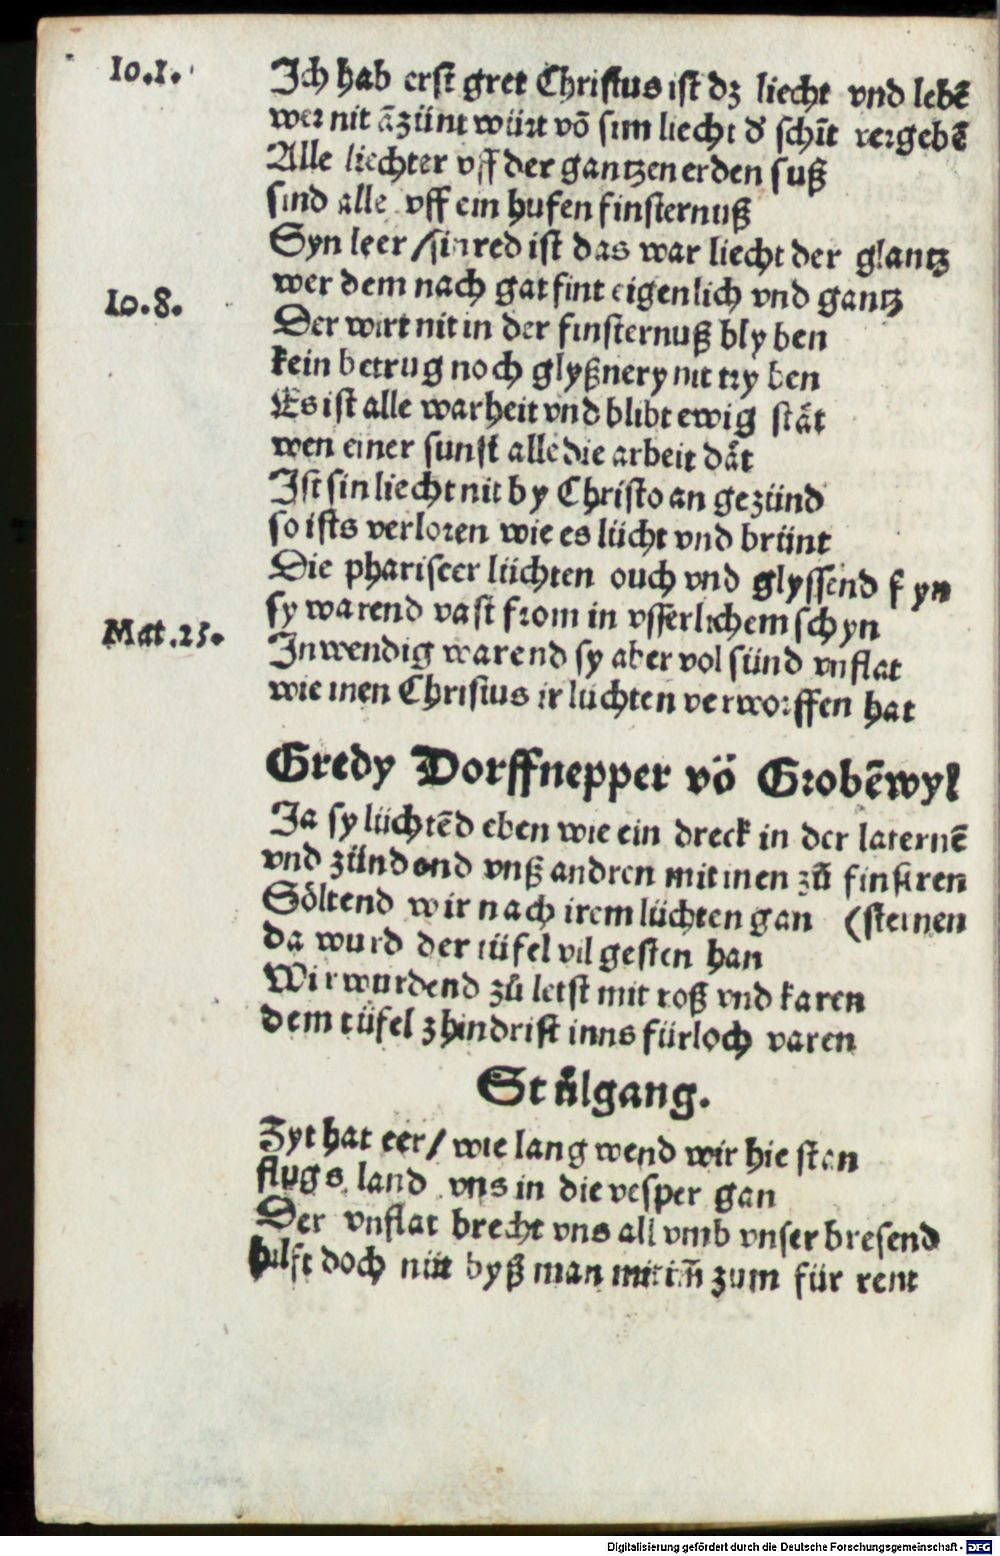 Io.1.
Ich hab erst gret Christus ist dz liecht vnd lebē
wer nit āzünt würt vō sim liecht d' schīt vergebē
Alle liechter vff der gantzen erden suß
sind alle vff ein hufen finsternuß
Syn leer / sin red ist das war liecht der glantz
Io.8.
wer dem nach gat fint eigenlich vnd gantz
Der wirt nit in der finsternuß blyben
kein betrug noch glyßnery nit tryben
Es ist alle warheit vnd blibt ewig ståt
wen einer sunst alle die arbeit dåt
Ist sin liecht nit by Christo an gezünd
so ists verloren wie es lücht vnd brünt
Die phariseer lüchten ouch vnd glyssend fyn
Mat.23.
sy warend vast from in vsserlichem schyn
Inwendig warend sy aber vol sünd vnflat
wie inen Christus ir lüchten verworffen hat
Gredy Dorffnepper vō Grobēwyl
Ja sy lüchtēd eben wie ein dreck in der laternē
vnd zündend vnß andren mit inen zů finstren
Söltend wir nach irem lüchten gan (sternen
da wurd der tüfel vil gesten han
Wir wurdend zů letst mit roß vnd karen
dem tüfel zhindrist inns fürloch varen
Stůlgang.
Zyt hat eer / wie lang wend wir hie stan
flugs land vns in die vesper gan
Der vnflat brecht vns all vmb vnser bresend
hilft doch nüt byß man mit im̄ zum für rent
Digitalisierung gefördert durch die Deutsche Forschungsgemeinschaft - DFG